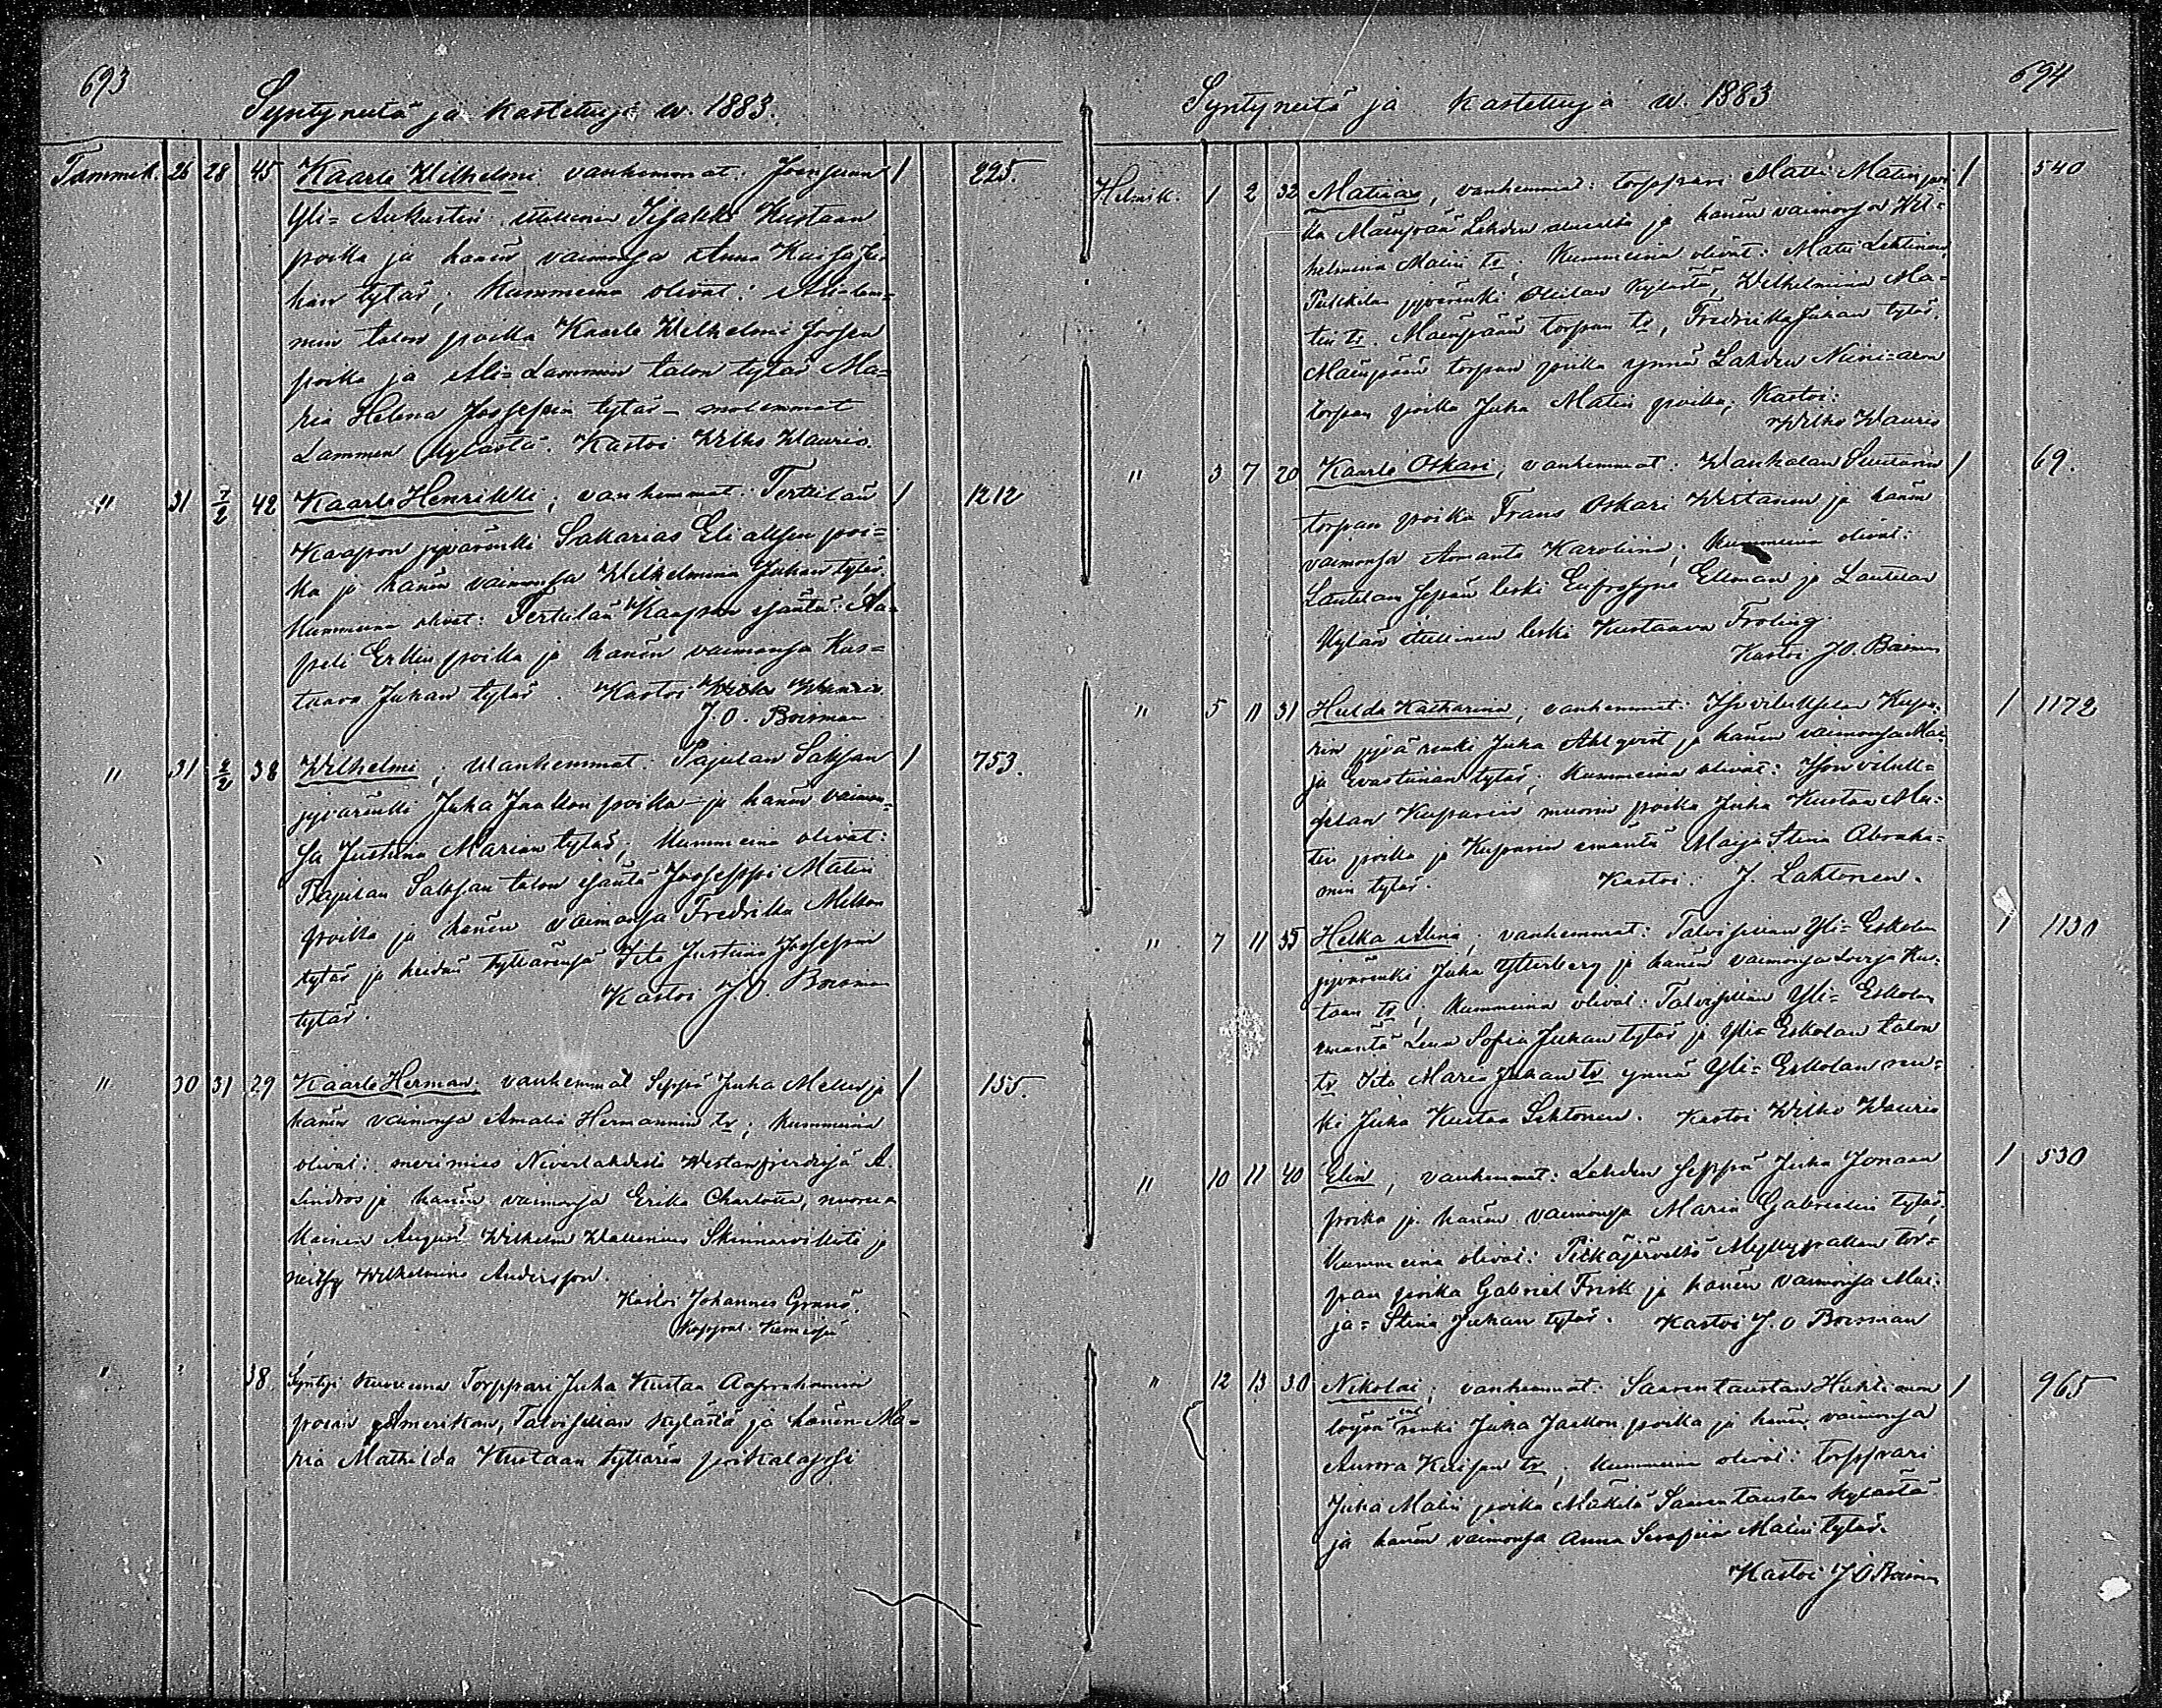 693
Syntyneitä ja kastettuja w. 1883.
Tammik. 26 28 45 Kaarle Wilhelmi vanhemmat: Joenpuun 1 225.
Yli-Aukustin itsellinen Iisakki Kustaan
poika ja hänen vaimonsa Anna Kaisa Ju-
han tytär; Kummeina olivat: Ali-Lam-
min talon poika Kaarle Wilhelmi Joosen
poika ja Ali-Lammin talon tytär Ma-
ria Helena Joosefin tytär - molemmat
Lammen kylästä. Kastoi Wilho Waurio
" 31 7/2 42 Kaarle Henrikki; vanhemmat: Tertilän 1 1212
Kaapon jyvärenki Sakarias Eliaksen poi-
ka ja hänen vaimonsa Wilhelmina Juhan tytär.
Kummeina olivat: Tertilän Kaapon isäntä: Aa-
peli Erkin poika ja hänen vaimonsa Kus-
taava Juhan tytär. Kastoi
J. O. Boisman
" 31 2/2 38 Wilhelmi; Wanhemmat: Pajulan Saksan 1 753.
jyvärenki Juha Jaakon poika ja hänen vaimon-
sa Justiina Marian tytär; Kummeina olivat:
Pajulan Saksan talon isäntä Jooseppi Matin
poika ja hänen vaimonsa Fredrika Mikon
tytär ja heidän tyttärensä Iita Justiina Joosepin
tytär. Kastoi J. O. Boisman
" 30 31 29 Kaarle Herman. vanhemmat Seppä Juha Melin ja 1 155.
hänen vaimonsa Amalia Hermannin tr; kummeina
olivat: merimies Niverlahdesta Westanfjerdissä A.
Lindros ja hänen vaimonsa Erika Charlotta, nuoru-
kainen August Wilhelm Wallenius Skinnarvikista ja
neitsy Wilhelmina Andersson.
Kastoi Johannes Granö.
Kappal. Kemiössä
" 38. Syntyi kuolleena Torppari Juha Kustaa Aaprahamin
pojan Amerikan, Talvisillan kylästä ja hänen Ma-
ria Mathilda Kustaan tyttären poikalapsi
694
Syntyneitä ja kastettuja w. 1883
Helmik. 1 2 32 Matias, vanhemmat: torppari Matti Matin poi- 1 540
ka Mäenpään Lahden alueelta ja hänen vaimonsa Wil-
helmina Matin tr; Kummeina olivat: Matti Lehtinen,
jyvärenki kylästä, Wilhelmina Ma-
tin tr. Mäenpään torpan tr, Fredrika Juhan tytär.
Mäenpään torpan poika ynnä Lahden Niini-aron
torpan poika Juha Matin poika; Kastoi:
Wilho Waurio
" 3 7 20 Kaarle Oskari, vanhemmat: Wankalan Suutarin 1 69.
torpan poika Frans Oskari Wirtanen ja hänen
vaimonsa Amanta Karoliina; Kummeina olivat:
Lautelan Sepän leski Eufrosyne Ekman ja Lautelan
kylän itsellinen leski Kustaava Froling.
Kastoi J. O. Boisman
" 5 11 31 Hulda Katharina; vanhemmat: Isovilukselan Kupa- 1 1172
rin jyvärenki Juha Ahlqvist ja hänen vaimonsa Mai-
ja Evastiinan tytär; Kummeina olivat: Isonviluk-
selan Kuparin nuorin poika Juha Kustaa Ma-
tin poika ja Kuparin emäntä Maija Stina Abraha-
min tytär. Kastoi: J. Lahtonen.
" 7 11 35 Helka Alina; vanhemmat: Talvisillan Yli-Eskolan 1 1130
jyvärenki Juha Ytterberg ja hänen vaimonsa Loviisa Kus-
taan tr; Kummeina olivat: Talvisillan Yli-Eskolan
emäntä Lena Sofia Juhan tytär ja Yli-Eskolan talon
tr Iita Maria Juhan tr ynnä Yli-Eskolan ren-
ki Juha Kustaa Lehtonen. Kastoi Wilho Waurio
" 10 11 40 Elin, vanhemmat: Lahden seppä Juha Jonaan 1 530
poika ja hänen vaimonsa Maria Gabrielin tytär.
Kummeina olivat: Pitkäjärveltä Myllypallan tor-
pan poika Gabriel Frisk ja hänen vaimonsa Mai-
ja-Stina Juhan tytär. Kastoi J. O Boisman
" 12 13 30 Nikolai; vanhemmat: Saarentaustan Huhtamon 1 965
renki Juha Jaakon poika ja hänen vaimonsa
Aurora Kaisan tr; Kummeina olivat: torppari
Juha Matin poika Mäkelä Saarentaustan kylästä
ja hänen vaimonsa Anna Serafiia Matin tytär.
Kastoi J. O Boisman